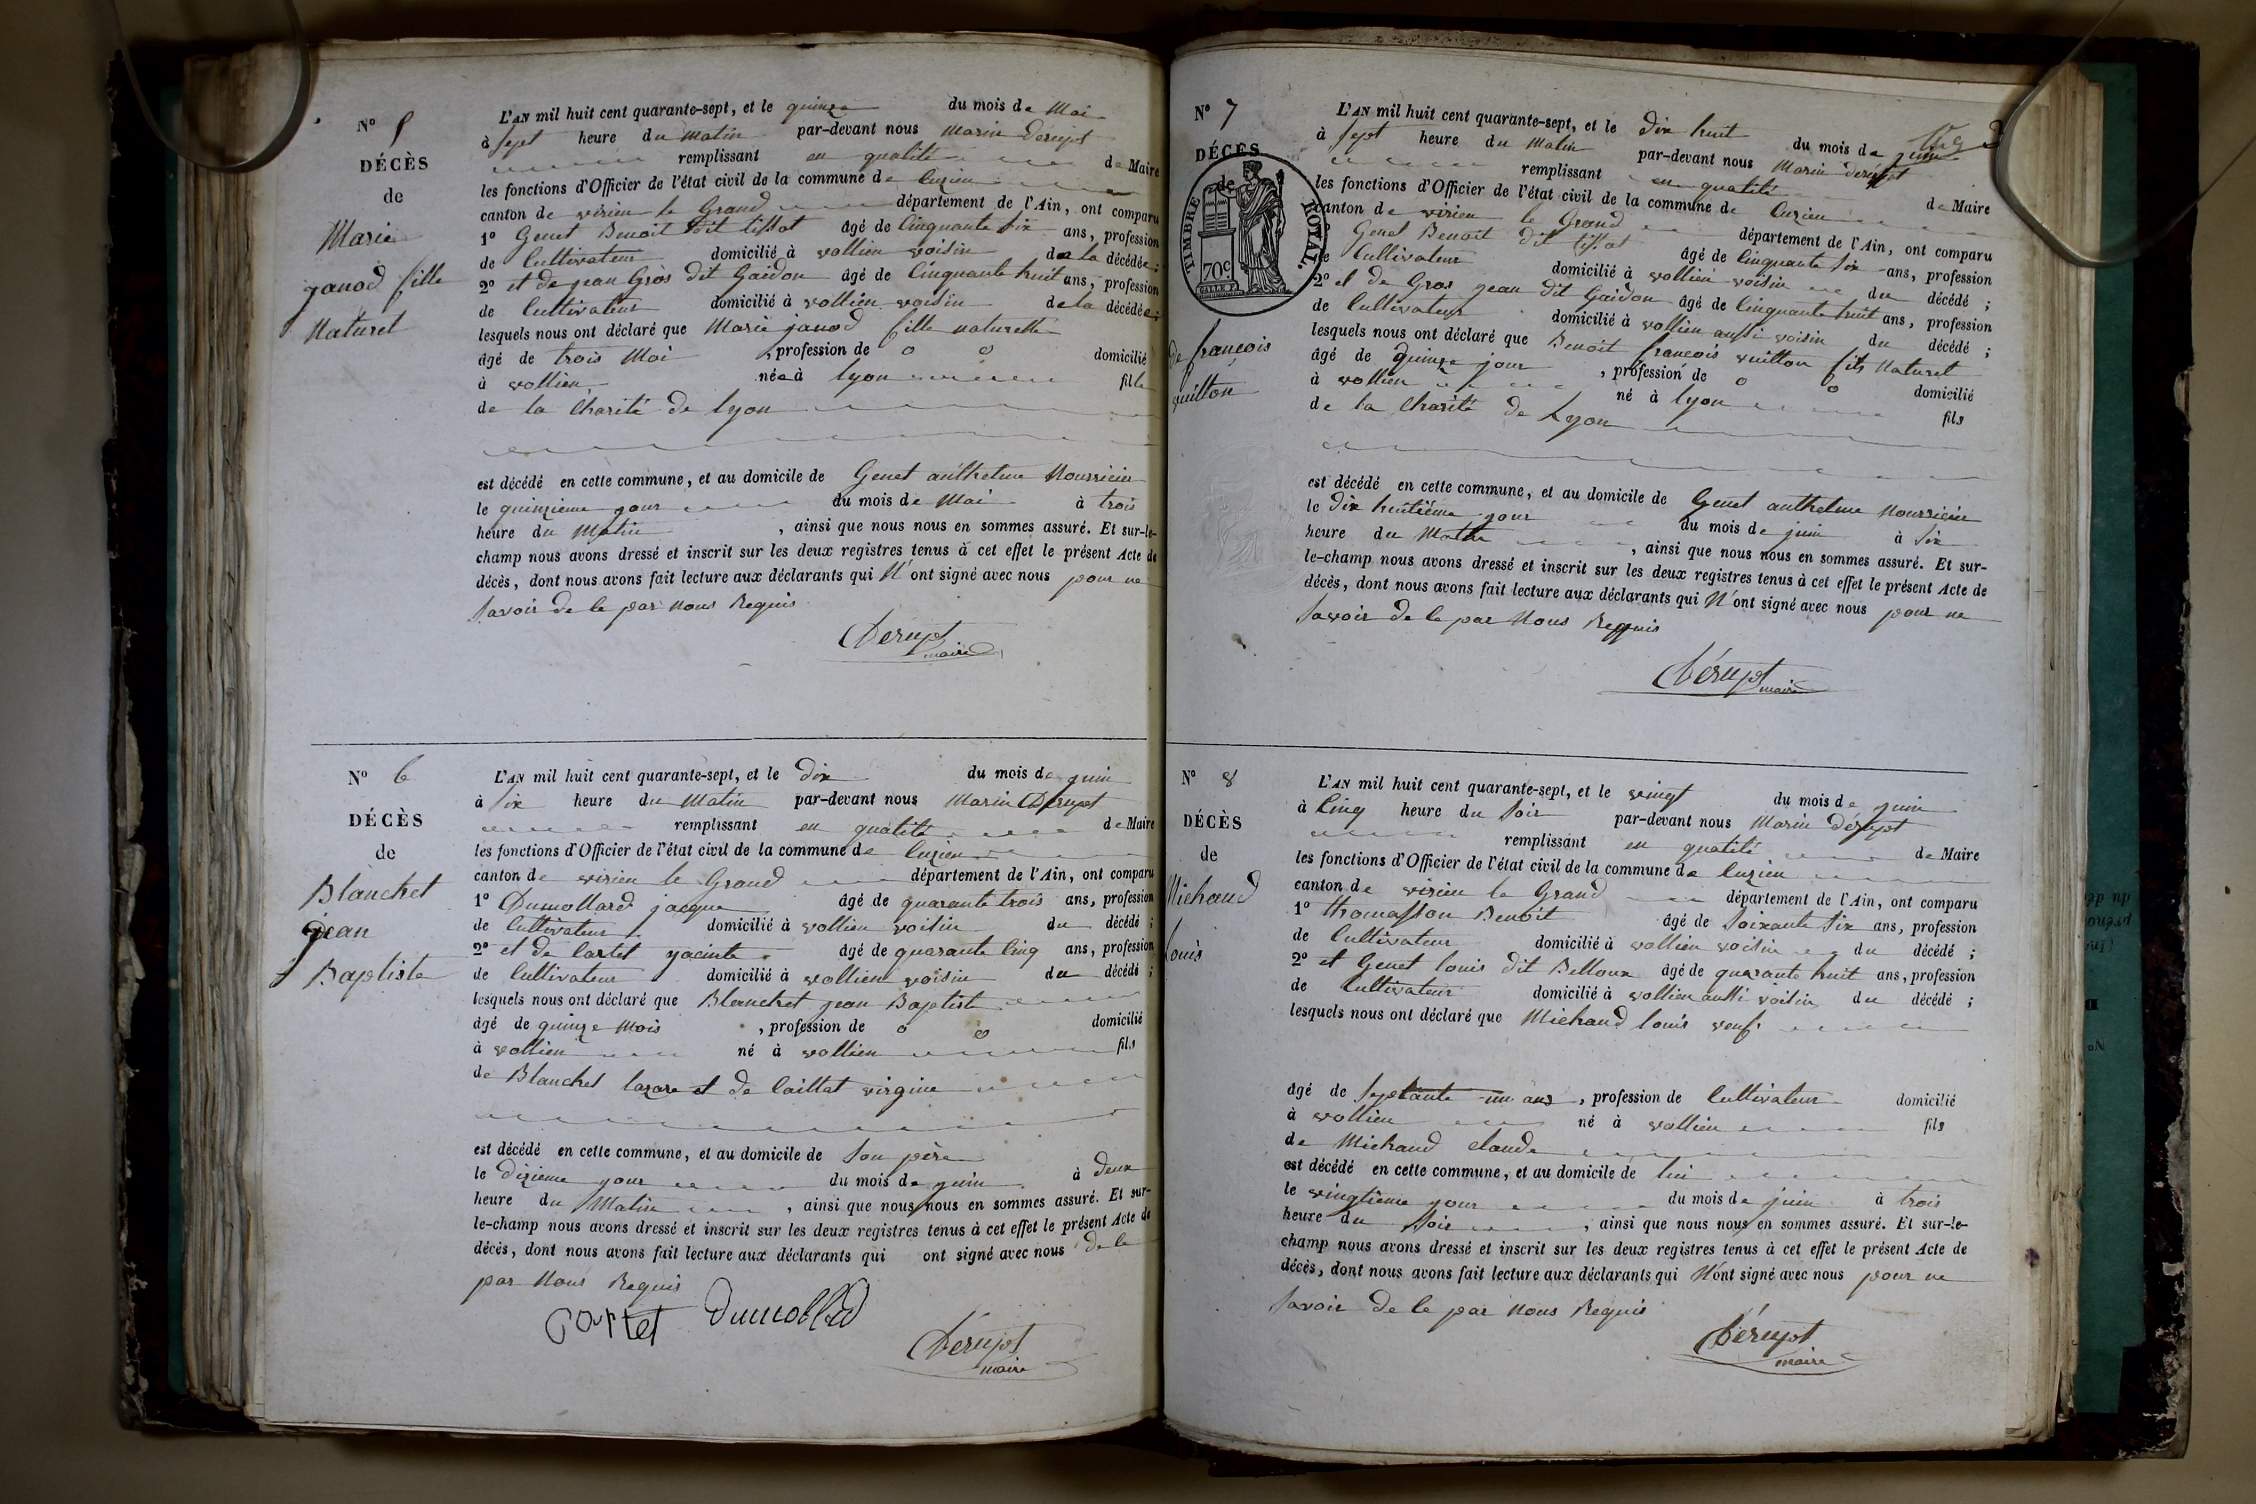 N° 5
DÉCÈS
de
Marie
janod fille
Naturel
L'AN mil huit cent quarante-sept, et le quinze du mois de Mai
à sept heure du matin par-devant nous Marin Dérupt
remplissant en qualité de Maire
les fonctions d'Officier de l'état civil de la commune de Cuzieu
canton de virieu le Grand département de l'Ain, ont comparu
1° Genet Benoit dit tissot âgé de Cinquante six ans, profession
de Cultivateur domicilié à vollien voisin de la décédée ;
2° et de jean Gros dit Gaidon âgé de Cinquante huit ans, profession
de Cultivateur domicilié à vollien voisin de la décédée ;
lesquels nous ont déclaré que Marie janod fille naturelle
âgé de trois Moi , profession de o o domicilié
à vollien née à lyon fille
de la Charité de lyon
est décédé en cette commune, et au domicile de Genet anthelme Nourricier
le quinzieme jour du mois de Mai à trois
heure du Matin , ainsi que nous nous en sommes assuré. Et sur-le-
champ nous avons dressé et inscrit sur les deux registres tenus à cet effet le présent Acte de
décès, dont nous avons fait lecture aux déclarants qui N'ont signé avec nous pour ne
savoir de le par nous Requis
Dérupt
maire
N° 6
DÉCÈS
de
Blanchet
jean
Baptiste
L'AN mil huit cent quarante-sept, et le dix du mois de juin
à six heure du Matin par-devant nous Marin Dérupt
remplissant en qualité de Maire
les fonctions d'Officier de l'état civil de la commune de Cuzieu
canton de virieu le Grand département de l'Ain, ont comparu
1° Dumollard jacque âgé de quarante trois ans, profession
de Cultivateur domicilié à vollien voisin du décédé ;
2° et de Cartet yacinte âgé de quarante Cinq ans, profession
de Cultivateur domicilié à vollien voisin du décédé ;
lesquels nous ont déclaré que Blanchet jean Baptist
âgé de quinze Mois , profession de o o domicilié
à vollien né à vollien fils
de Blanchet lazare et de Caillat virginie
est décédé en cette commune, et au domicile de son père
le dizieme jour du mois de juin à deux
heure du Matin , ainsi que nous nous en sommes assuré. Et sur-
le-champ nous avons dressé et inscrit sur les deux registres tenus à cet effet le présent Acte de
décès, dont nous avons fait lecture aux déclarants qui ont signé avec nous de le
par Nous Requis
Cartet Dumollard
Dérupt
maire
N° 7
DÉCÈS
de
TIMBRE ROYAL.
70c.
de françois
vuitton
L'AN mil huit cent quarante-sept, et le dix huit du mois de juin
à sept heure du Matin par-devant nous Marin dérupt
remplissant en qualité de Maire
les fonctions d'Officier de l'état civil de la commune de Cuzieu
canton de virieu le Grand département de l'Ain, ont comparu
Genet Benoit dit tissot âgé de Cinquante six ans, profession
de Cultivateur domicilié à vollien voisin du décédé ;
2° et de Gros jean dit Gaidon âgé de Cinquante huit ans, profession
de Cultivateur domicilié à vollien aussi voisin du décédé ;
lesquels nous ont déclaré que Benoit françois vuitton fils Naturel
âgé de quinze jour , profession de o o domicilié
à vollien né à lyon fils
de la Charité de Lyon
est décédé en cette commune, et au domicile de Genet anthelme Nourricier
le Dix huitième jour du mois de juin à six
heure du Matin , ainsi que nous nous en sommes assuré. Et sur-
le-champ nous avons dressé et inscrit sur les deux registres tenus à cet effet le présent Acte de
décès, dont nous avons fait lecture aux déclarants qui N'ont signé avec nous pour ne
savoir de le par Nous Requis
Dérupt
maire
N° 8
DÉCÈS
de
Michaud
Louis
L'AN mil huit cent quarante-sept, et le vingt du mois de juin
à Cinq heure du soir par-devant nous Marin dérupt
remplissant en qualité de Maire
les fonctions d'Officier de l'état civil de la commune de Cuzieu
canton de virieu le Grand département de l'Ain, ont comparu
1° thomasson Benoit âgé de Soixante six ans, profession
de Cultivateur domicilié à vollien voisin du décédé ;
2° et Genet louis dit Belloux âgé de quarante huit ans, profession
de Cultivateur domicilié à vollien aussi voisin du décédé ;
lesquels nous ont déclaré que Michaud louis veuf
âgé de septante un ans , profession de Cultivateur domicilié
à vollien né à vollien fils
de Michaud claude
est décédé en cette commune, et au domicile de lui
le vingtieme jour du mois de juin à trois
heure du soir , ainsi que nous nous en sommes assuré. Et sur-le-
champ nous avons dressé et inscrit sur les deux registres tenus à cet effet le présent Acte de
décès, dont nous avons fait lecture aux déclarants qui N'ont signé avec nous pour ne
savoir de le par Nous Requis
Dérupt
maire